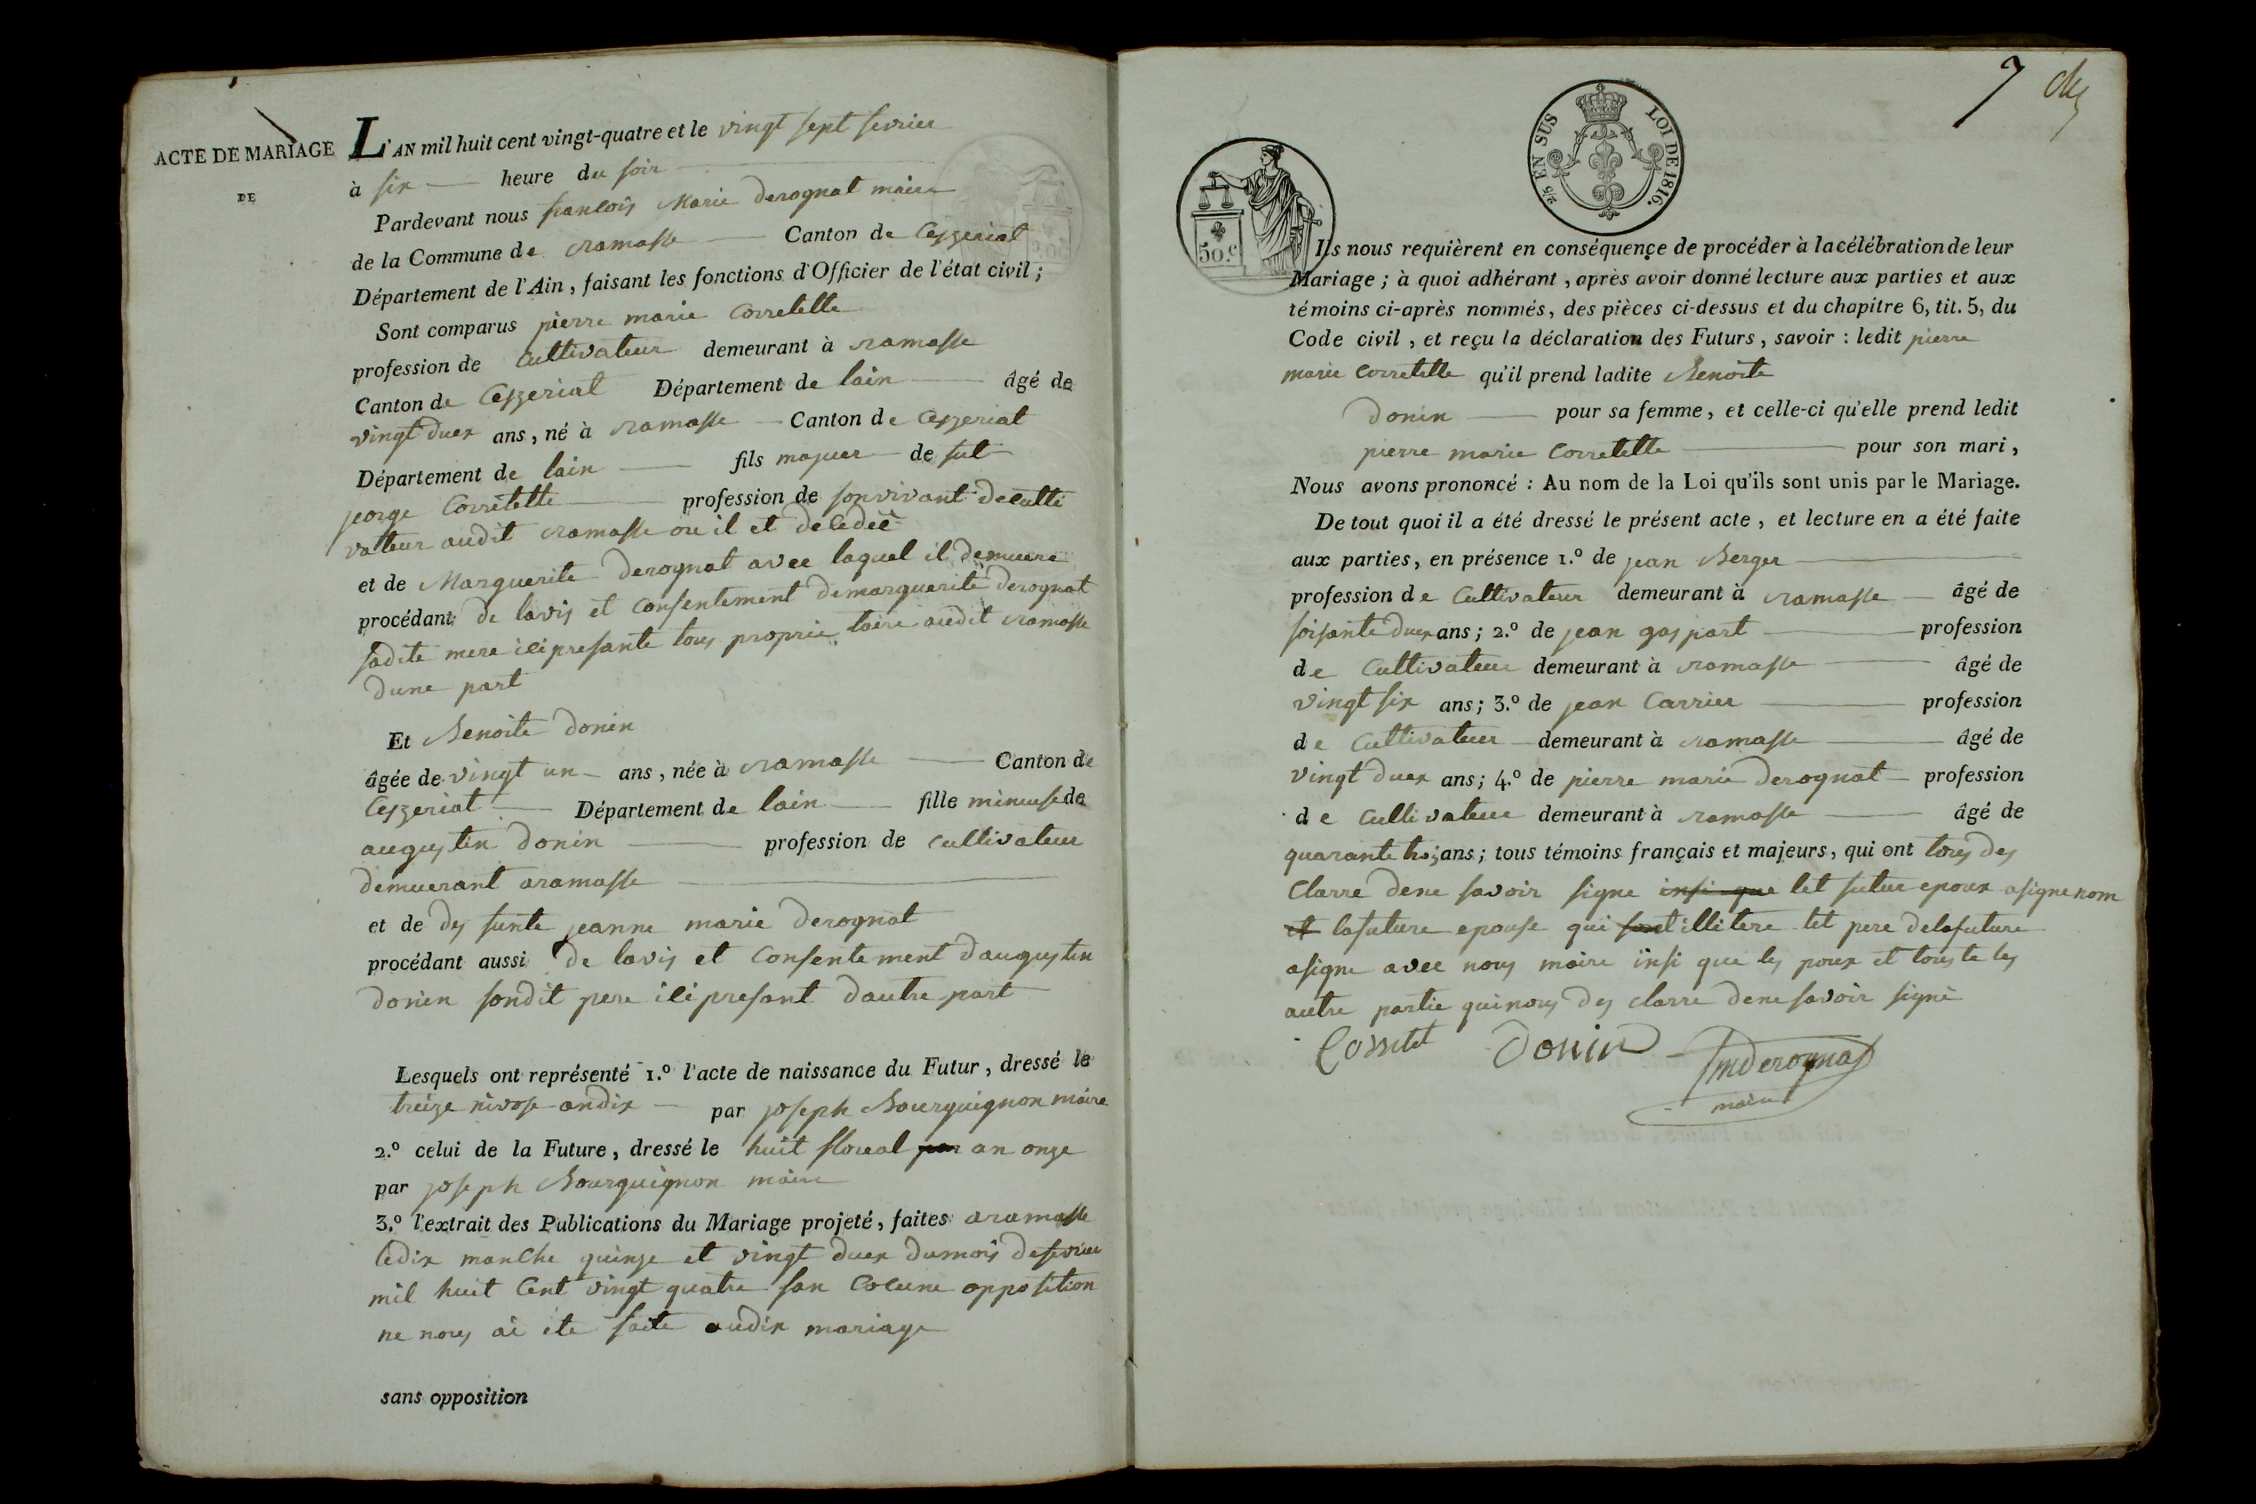 ACTE DE MARIAGE
DE
L'AN mil huit cent vingt-quatre et le vingt sept fevrier
à six heure du soir
Pardevant nous francois Marie derognat maire
de la Commune de ramasse Canton de Ceyzeriat
Département de l'Ain, faisant les fonctions d'Officier de l'état civil;
Sont comparus pierre marie Corretelle
profession de Cultivateur demeurant à ramasse
Canton de Ceyzeriat Département de lain âgé de
vingt duex ans, né à ramasse Canton de Ceyzeriat
Département de lain fils majuer de fut
jeorge Corretelle profession de sonvivant deculti
vateur audit ramasse ou il et decedeé
et de Marguerite derognat avec laquel il demuere
procédant de lavis et Consentement demarguerite derognat
sadite mere ici presante tous proprie taire audit ramasse
dune part
Et Benoite donin
âgée de vingt un ans, née à ramasse Canton de
Ceyzeriat Département de lain fille minuese de
augustin donin profession de cultivateur
demuerant aramasse
et de des funte jeanne marie derognat
procédant aussi de lavis et Consentement daugustin
donin sondit pere ici presant dautre part
Lesquels ont représenté 1.º l'acte de naissance du Futur, dressé le
treize nivose andix par joseph Bourguignon maire
2.º celui de la Future, dressé le huit floreal par an onze
par joseph Bourguignon maire
3.º l'extrait des Publications du Mariage projeté, faites aramasse
ledix manche quinze et vingt duex dumois defevrier
mil huit Cent vingt quatre san Cocune opposition
ne nous ai ete faite audix mariage
sans opposition
7
2/5 EN SUS
LOI DE 1816.
50 c
Ils nous requièrent en conséquence de procéder à la célébration de leur
Mariage; à quoi adhérant, après avoir donné lecture aux parties et aux
témoins ci-après nommés, des pièces ci-dessus et du chapitre 6, tit. 5, du
Code civil, et reçu la déclaration des Futurs, savoir : ledit pierre
marie Corretelle qu'il prend ladite Benoite
donin pour sa femme, et celle-ci qu'elle prend ledit
pierre marie Corretelle pour son mari,
Nous avons prononcé : Au nom de la Loi qu'ils sont unis par le Mariage.
De tout quoi il a été dressé le présent acte, et lecture en a été faite
aux parties, en présence 1.º de jean Berger
profession de Cultivateur demeurant à ramasse âgé de
soisante duex ans; 2.º de jean gaspart profession
de Cultivateur demeurant à ramasse âgé de
vingt six ans; 3.º de jean Carrier profession
de Cultivateur demeurant à ramasse âgé de
vingt duex ans; 4.º de pierre marie derognat profession
de Cultivateur demeurant à ramasse âgé de
quarante trois ans; tous témoins français et majeurs, qui ont tous des
Clarre dene savoir signe insi que let futur epoux asigne nom
et lafuture epouse qui sont illitere let pere delafuture
asigne avec nous maire insi que les poux et touste les
autre partie quinous des clarre dene savoir signé
Corretel Donin fmderognat
maire